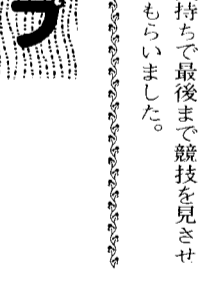 持ちで最後まで競技を見させ
もらいました。
プ